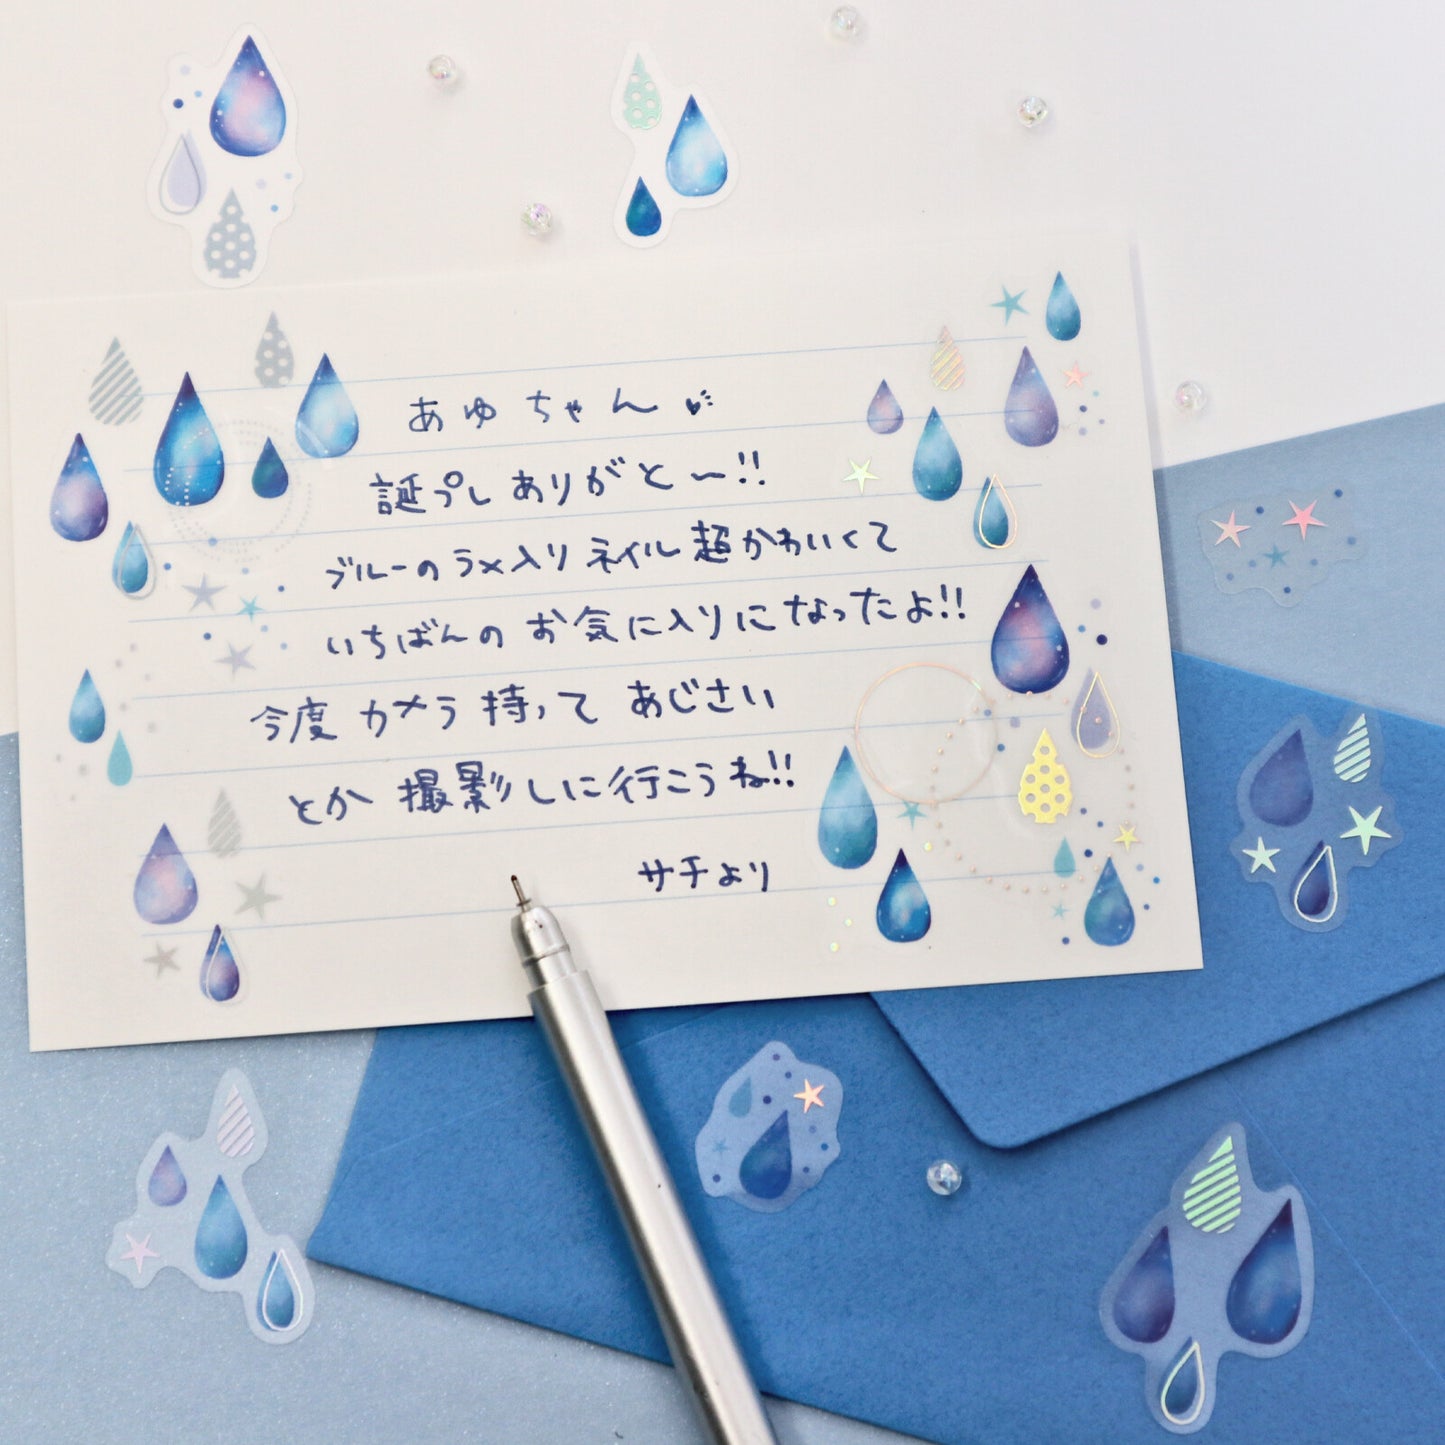 あゆちゃん
誕プレありがと〜!!
ブルーのラメ入りネイル超かわいくて
いちばんのお気に入りになったよ!!
今度カメラ持って あじさい
とか撮影しに行こうね!!
サチより